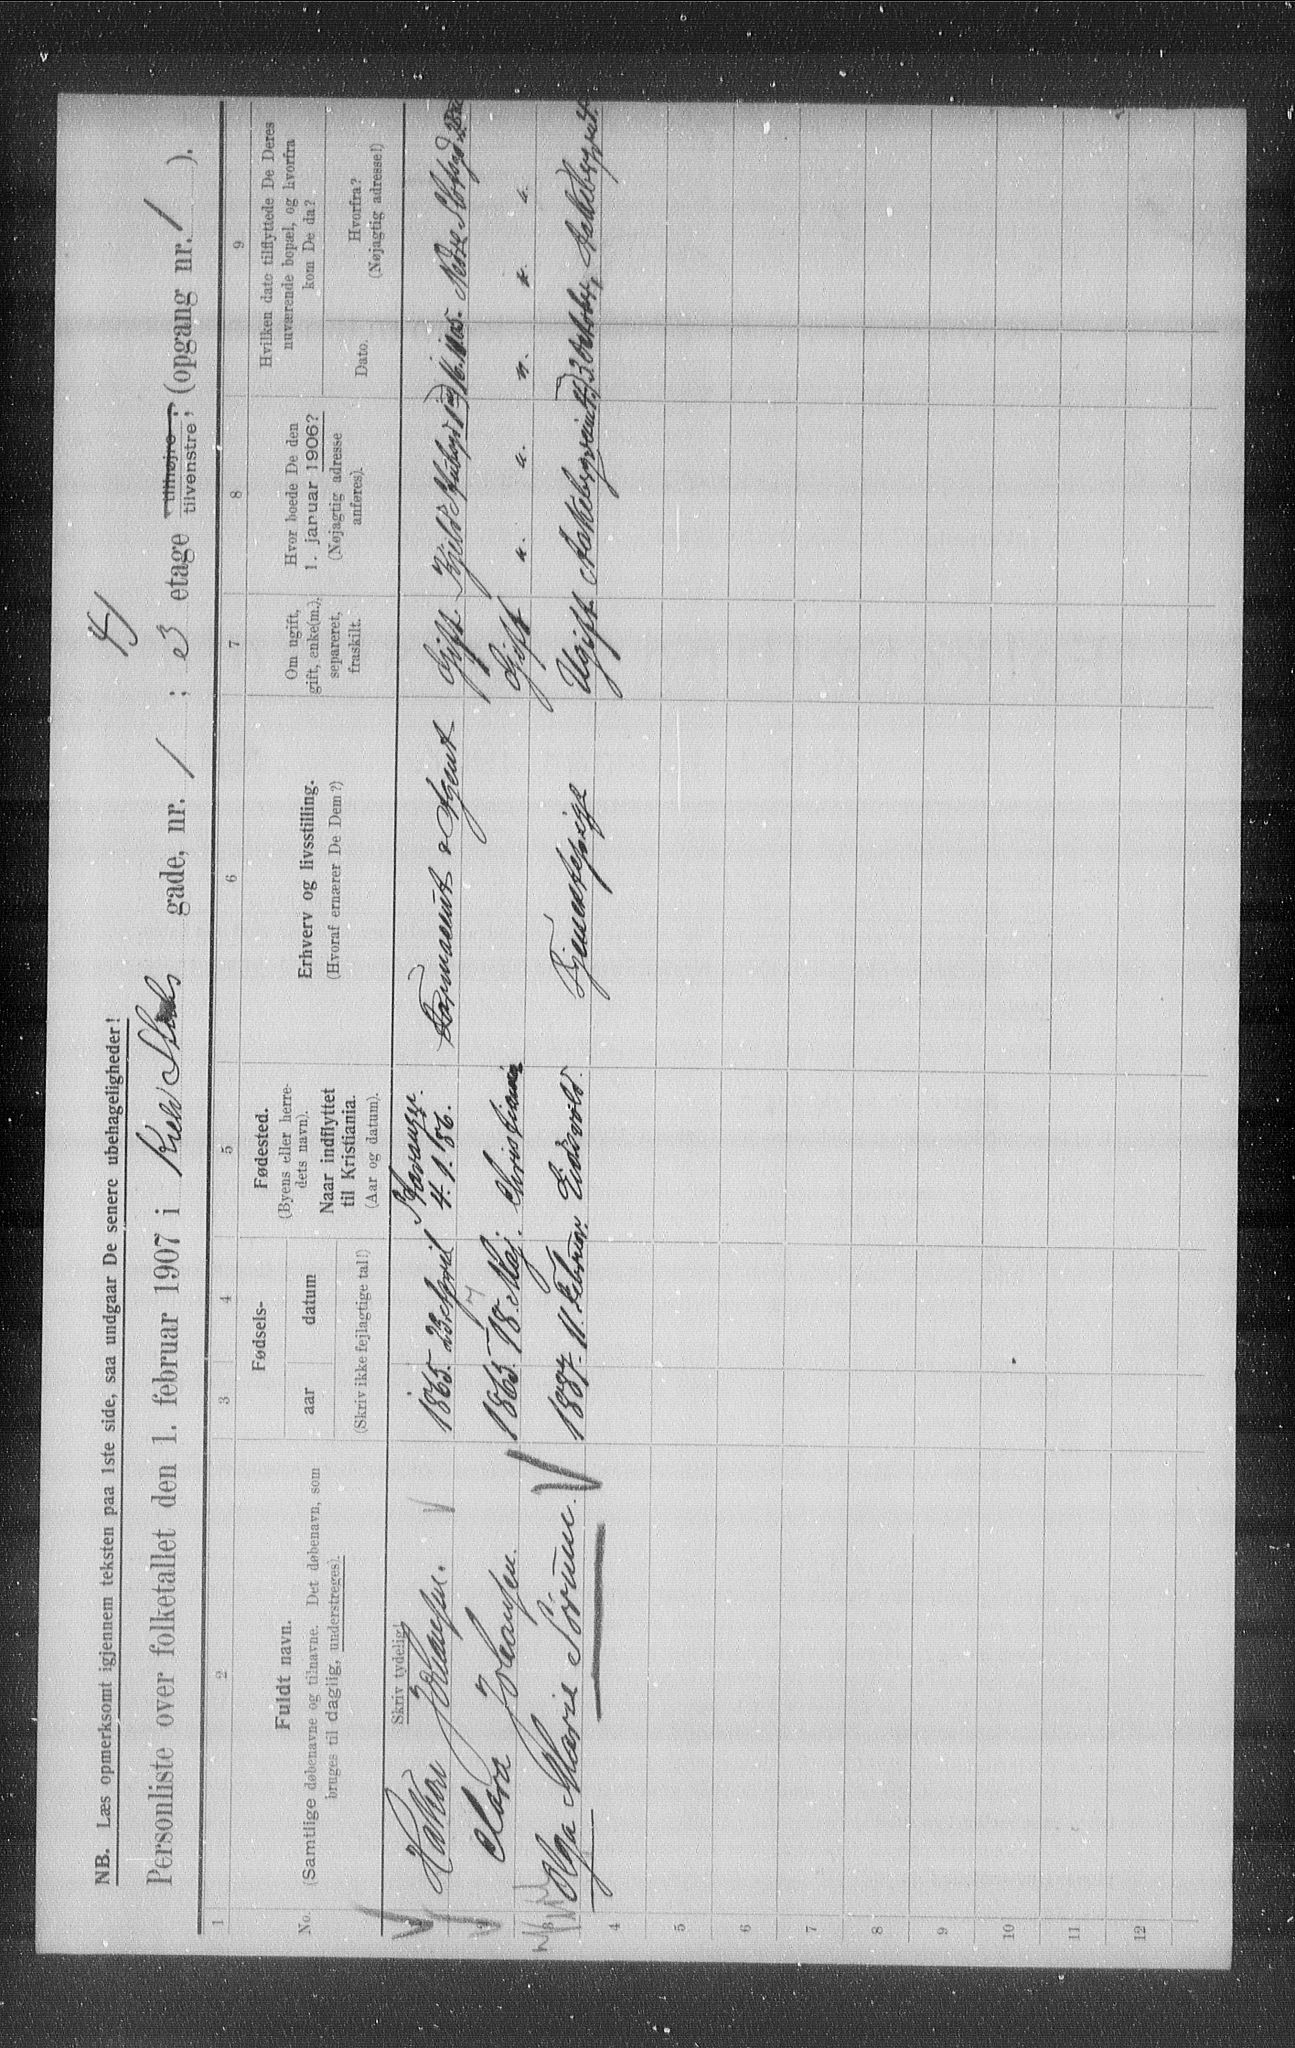 4/
NB. Læs opmerksomt igjennem teksten paa 1ste side, saa undgaar De senere ubehageligheder!
Personliste over folketallet den 1. februar 1907 i Kield Stubs gade, nr. 1 ; 3 etage tilhøjre ; tilvenstre; (opgang nr. 1 ).
1 2 3 4 5 6 7 8 9
No.
Fuldt navn.
(Samtlige døbenavne og tilnavne. Det døbenavn, som
bruges til daglig, understreges).
Skriv tydelig!
Fødsels-
aar datum
(Skriv ikke fejlagtige tal!)
Fødested.
(Byens eller herre-
dets navn).
Naar indflyttet
til Kristiania.
(Aar og datum).
Erhverv og livsstilling.
(Hvoraf ernærer De Dem?)
Om ugift,
gift, enke(m.),
separeret,
fraskilt.
Hvor boede De den
1. januar 1906?
(Nøjagtig adresse
anføres).
Hvilken dato tilflyttede De Deres
nuværende bopæl, og hvorfra
kom De da?
Dato.
Hvorfra?
(Nøjagtig adresse!)
1 Hakon Johansen. 1865. 23 April Stavanger. 4.1.86. Farmaceut & Agent Gift. Nedre
2 Clara Johansen. 1865. 18. Maj. 7 Christiania Gift " " " " "
3 Olga Marie Sörum. 1887. 11. Februar Eidsvold. Tjenestepige Ugift 3 October,
4
5
6
7
8
9
10
11
12